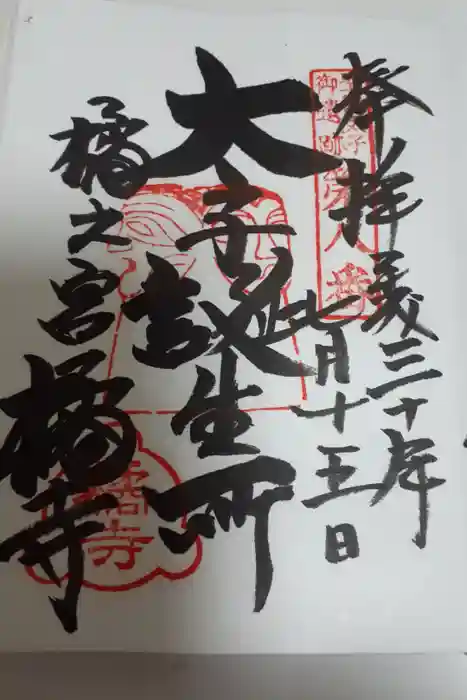 奉拝 平成三十年
七月十五日
聖徳太子
御遺跡
第八番
太子誕生所
橘之宮 橘寺
橘寺